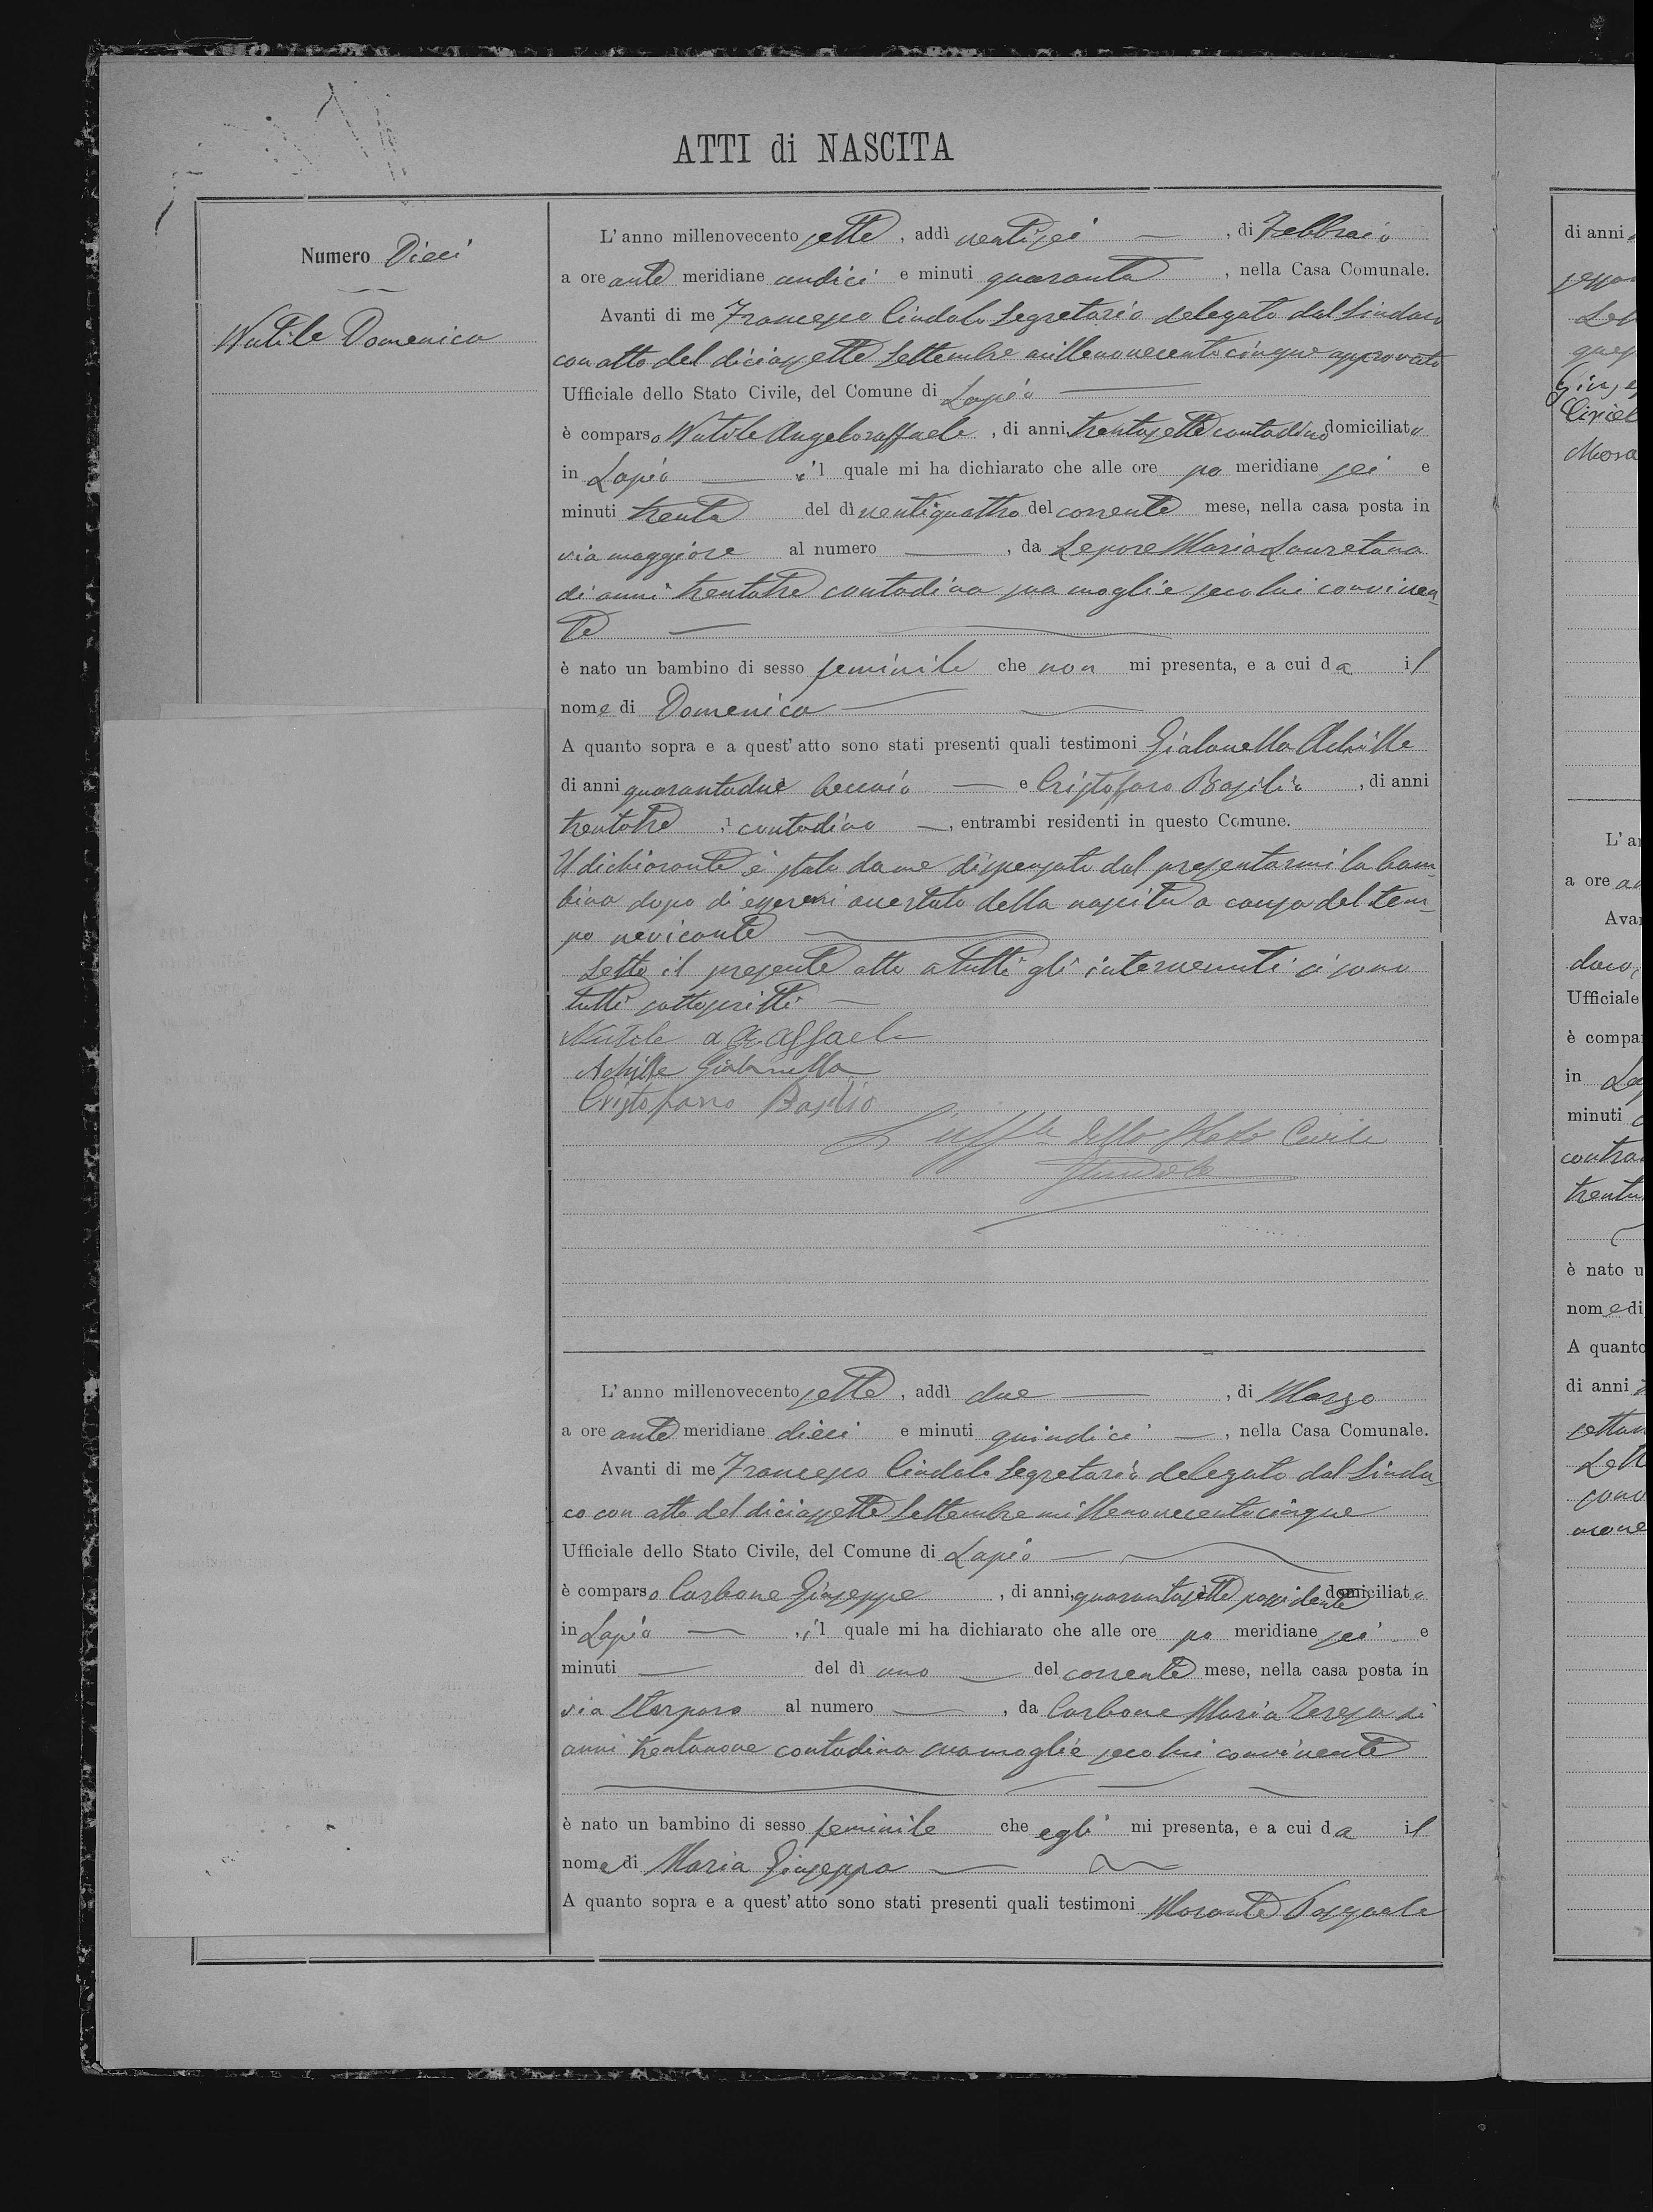 ATTI di NASCITA
Numero Dieci
Nutile Domenica
L'anno millenovecento sette, addì ventisei, di Febbraio
a ore ante meridiane undici e minuti quaranta, nella Casa Comunale.
Avanti di me Francesco Cindolo Segretario delegato dal Sindaco
con atto del diciassette Settembre millenovecentocinque approvato
Ufficiale dello Stato Civile, del Comune di Lapio
è comparso Nutile Angeloraffaele, di anni trentasette contadino domiciliato
in Lapio, il quale mi ha dichiarato che alle ore po meridiane sei e
minuti trenta del dì ventiquattro del corrente mese, nella casa posta in
via maggiore al numero —, da Lepore Maria Lauretana
di anni trentatre contadina sua moglie seco lui conviven-
te
è nato un bambino di sesso feminile che non mi presenta, e a cui da il
nome di Domenica
A quanto sopra e a quest'atto sono stati presenti quali testimoni Gialanella Achille
di anni quarantadue beccaio e Cristofaro Basilio, di anni
trentatre, contadino, entrambi residenti in questo Comune.
Il dichiarante è stato da me dispensato dal presentarmi la bam-
bina dopo di essermi accertato della nascita a causa del tem-
po nevicante
Letto il presente atto a tutti gli intervenuti si sono
tutti sottoscritti
Nutile a Raffaele
Achille Gialanella
Cristofaro Basilio
L'uff.le dello Stato Civile
FCindolo
L'anno millenovecento sette, addì due, di Marzo
a ore ante meridiane dieci e minuti quindici, nella Casa Comunale.
Avanti di me Francesco Cindolo Segretario delegato dal Sinda-
co con atto del diciassette Settembre millenovecentocinque
Ufficiale dello Stato Civile, del Comune di Lapio
è comparso Carbone Giuseppe, di anni, quarantasette possidente domiciliato
in Lapio, il quale mi ha dichiarato che alle ore po meridiane sei e
minuti — del dì uno del corrente mese, nella casa posta in
via al numero —, da Carbone Maria Teresa di
anni trentanove contadina sua moglie seco lui convivente
è nato un bambino di sesso feminile che egli mi presenta, e a cui da il
nome di Maria Giuseppa
A quanto sopra e a quest'atto sono stati presenti quali testimoni Morante Pasquale
di anni
L'a
a ore an
Ava
Ufficiale
è compa
in La
minuti
contra
è nato u
nome di
A quanto
di anni